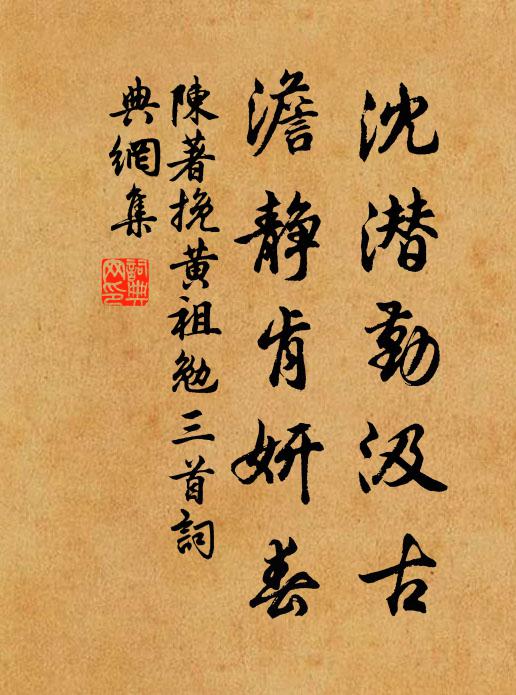 沈潜勤汲古
澹静肯妍春
陳著挽黄祖勉三首詞
典網集
詞典網印